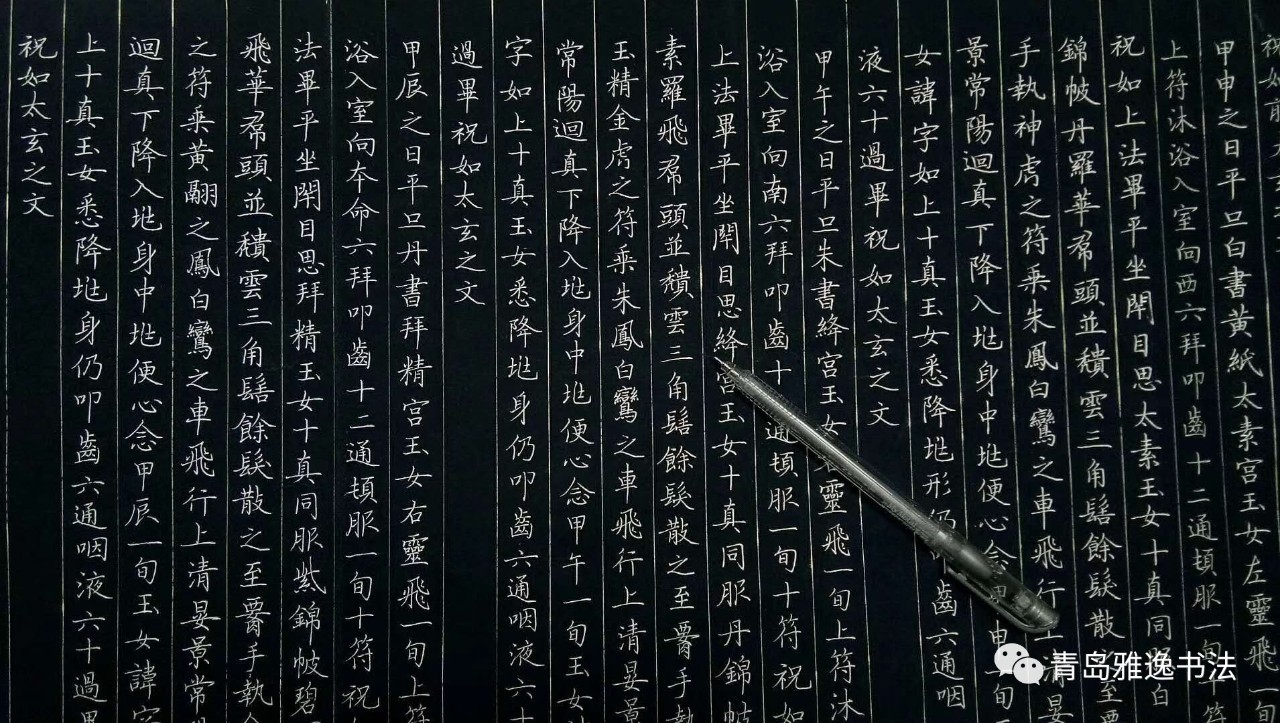 祝如前
甲申之日平旦白書黄紙太素宫玉女左靈飛一旬
上符沐浴入室向西六拜叩齒十二通頓服一旬十符
祝如上法畢平坐閉目思太素玉女十真同服白
錦帔丹羅華帬頭並穨雲三角髻餘髮散之至腰
手執神虎之符乘朱鳳白鸞之車飛行上清晏
景常陽迴真下降入兆身中兆便心念甲申一旬
女諱字如上十真玉女悉降兆形仍叩齒六通咽
液六十過畢祝如太玄之文
甲午之日平旦朱書絳宫玉女右靈飛一旬上符沐
浴入室向南六拜叩齒十二通頓服一旬十符祝如
上法畢平坐閉目思絳宫玉女十真同服丹錦帔
素羅飛帬頭並穨雲三角髻餘髮散之至腰手執
玉精金虎之符乘朱鳳白鸞之車飛行上清晏景
常陽迴真下降入兆身中兆便心念甲午一旬玉女
字如上十真玉女悉降兆身仍叩齒六通咽液六十
過畢祝如太玄之文
甲辰之日平旦丹書拜精宫玉女右靈飛一旬上符
浴入室向本命六拜叩齒十二通頓服一旬十符祝
法畢平坐閉目思拜精玉女十真同服紫錦帔碧
飛華帬頭並穨雲三角髻餘髮散之至腰手執
之符乘黄翮之鳳白鸞之車飛行上清晏景常
迴真下降入兆身中兆便心念甲辰一旬玉女諱字
上十真玉女悉降兆身仍叩齒六通咽液六十過畢
祝如太玄之文
青岛雅逸书法